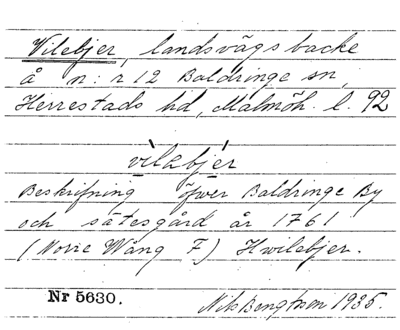 Vilebjer, landsvägsbacke
å n:r 12 Baldringe sn,
Herrestads hd, Malmöh. l. 92
vìlebjér
Beskrifning öfwer Baldringe By
och sätesgård år 1761
(Norre Wång F) Hwilebjer.
Nr 5630.
Nils Bengtsson 1935.